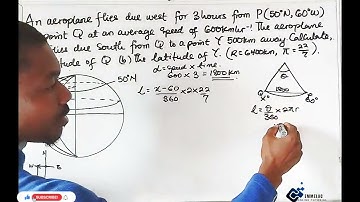 An aeroplane flies due west for 3 hours from P (50°N, 60°W)
point Q at an average speed of 600km/hr. The aeroplane
flies due South from Q to a point Y 500km away. Calculate,
itude of Q (b) the latitude of Y. (R = 6400km, π = 22/7).
d = Speed × time.
600 × 3 = 1800km
50°N
L = x-60/360 × 2 × 22/7
θ
1800
Q
x°
60°
L = θ/360 × 2πr
W
E
SUBSCRIBE